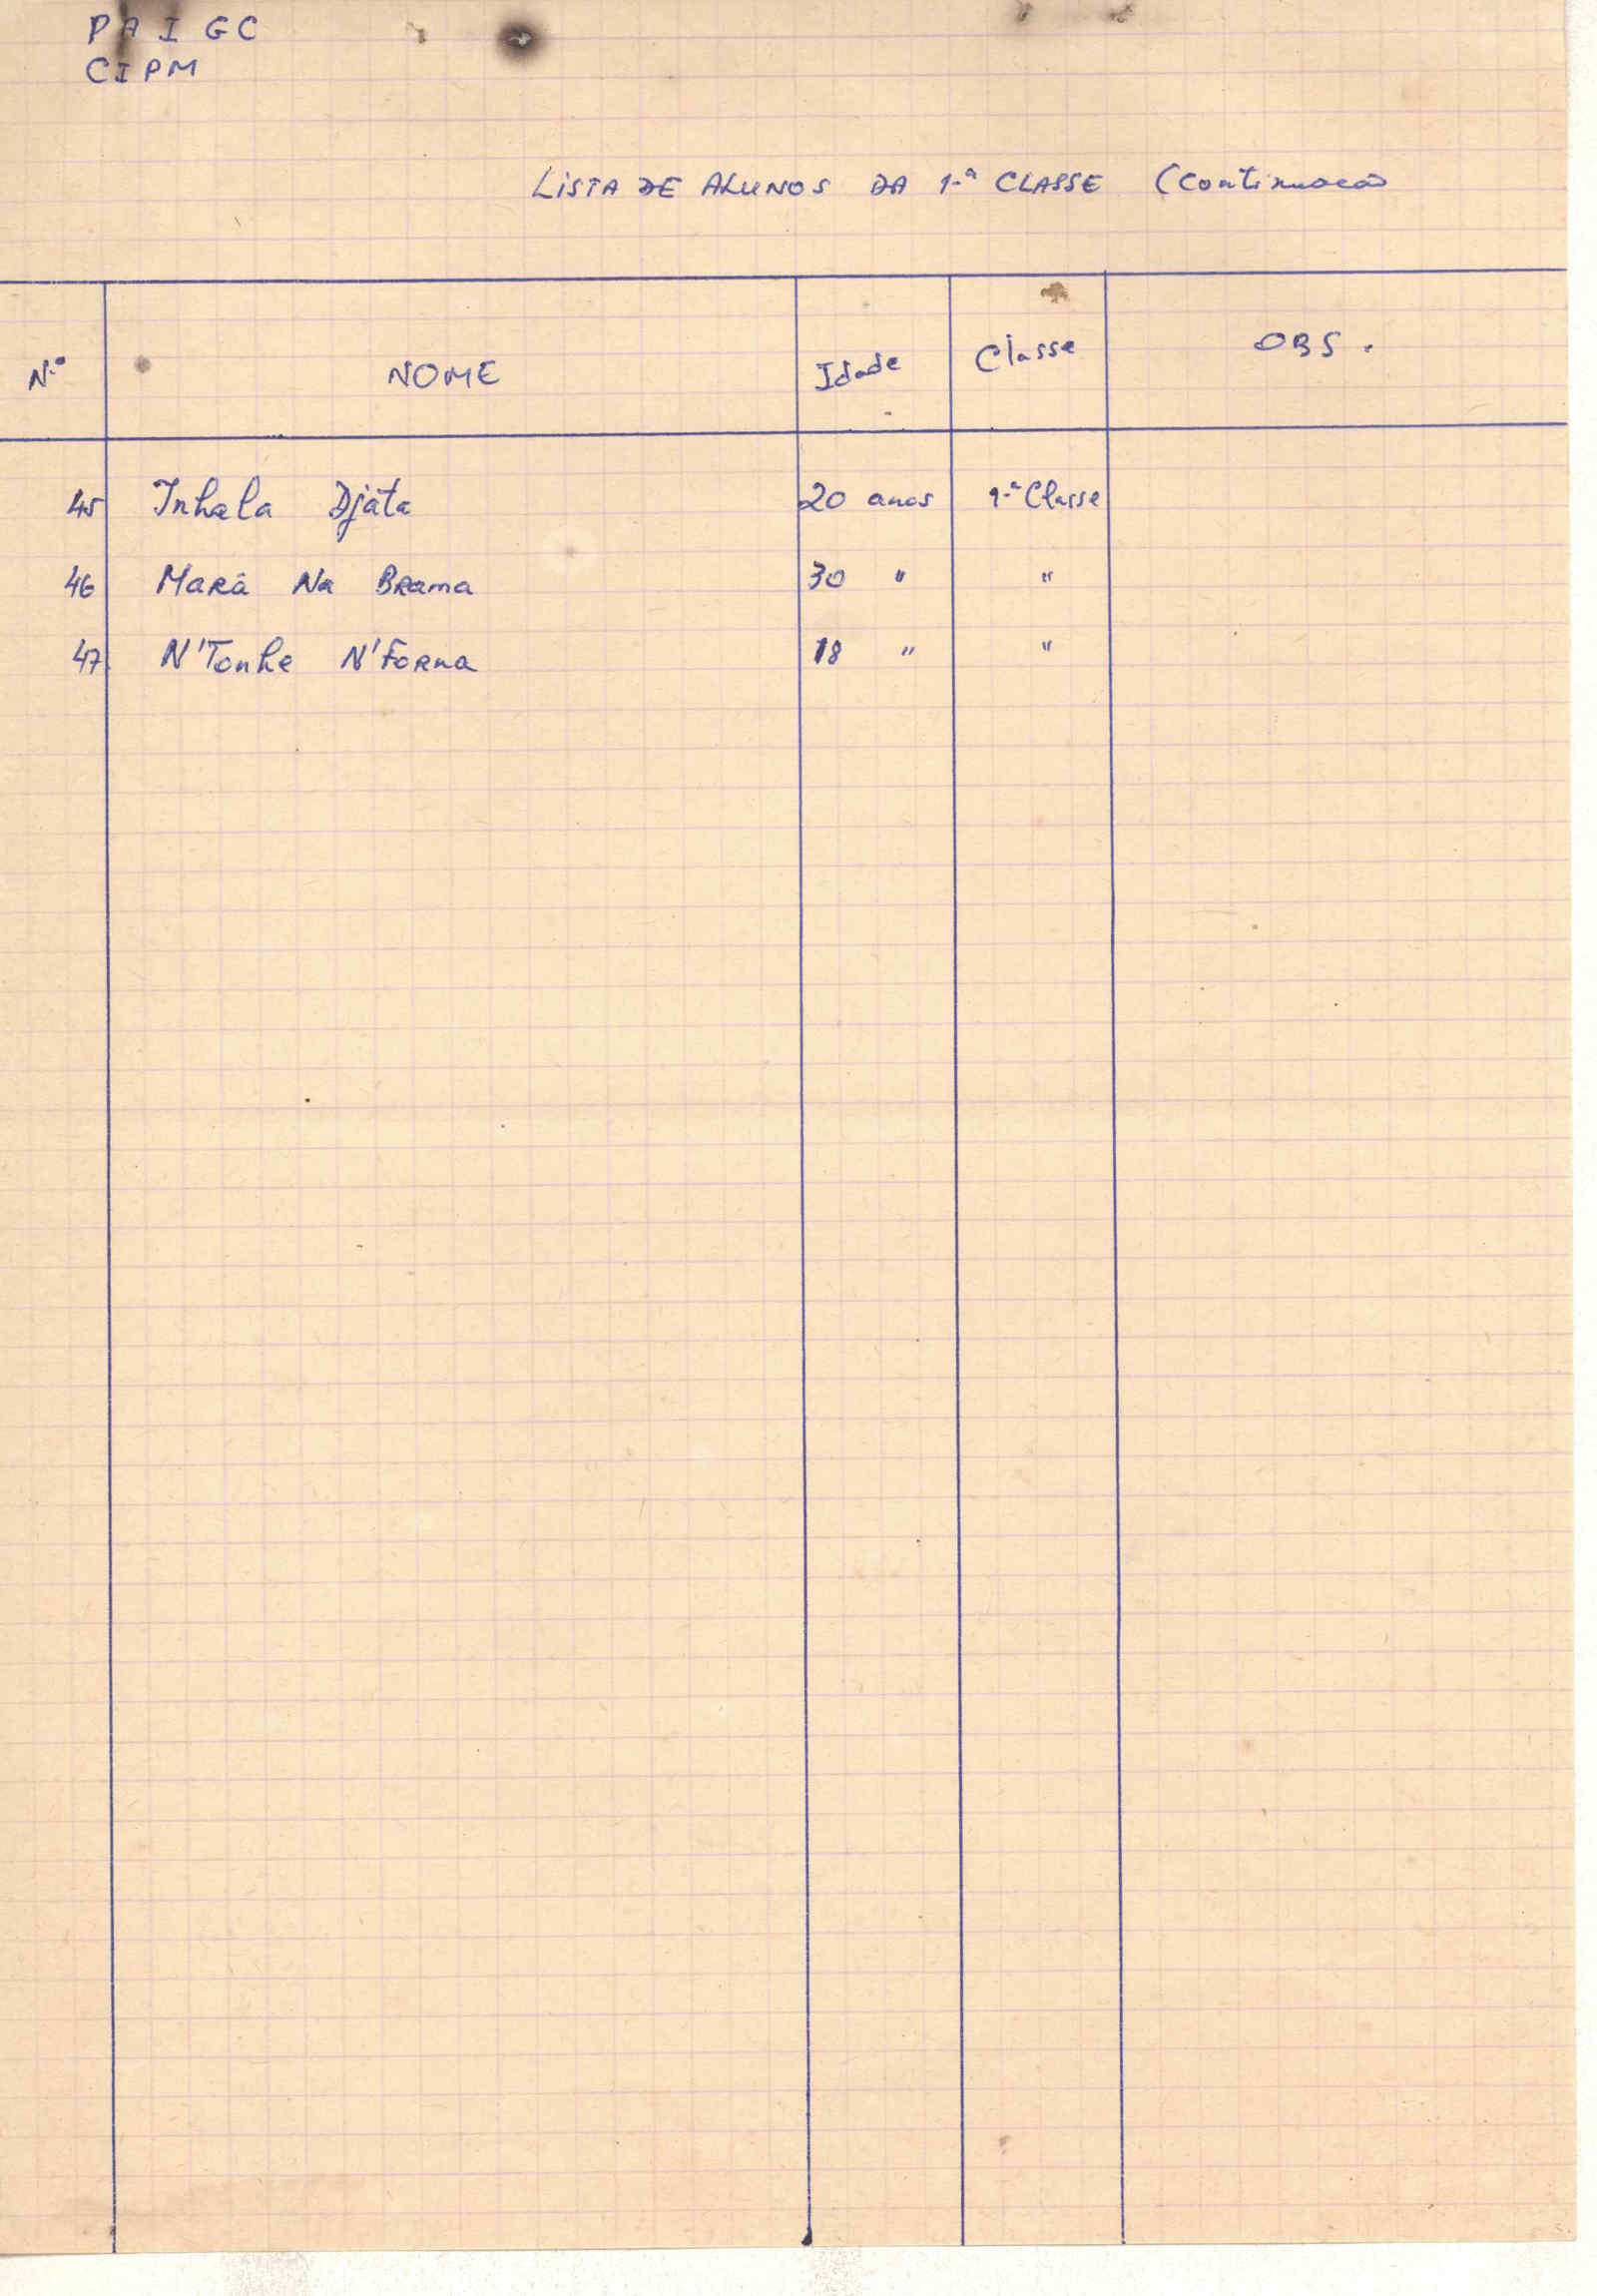 PAIGC
CIPM
LISTA DE ALUNOS DA 1.ª CLASSE (Continuação
N.º NOME Idade Classe OBS.
45 Inhala Djata 20 anos 1.ª Classe
46 Mará Na Brama 30 " "
47 N'Tonhe N'Forna 18 " "